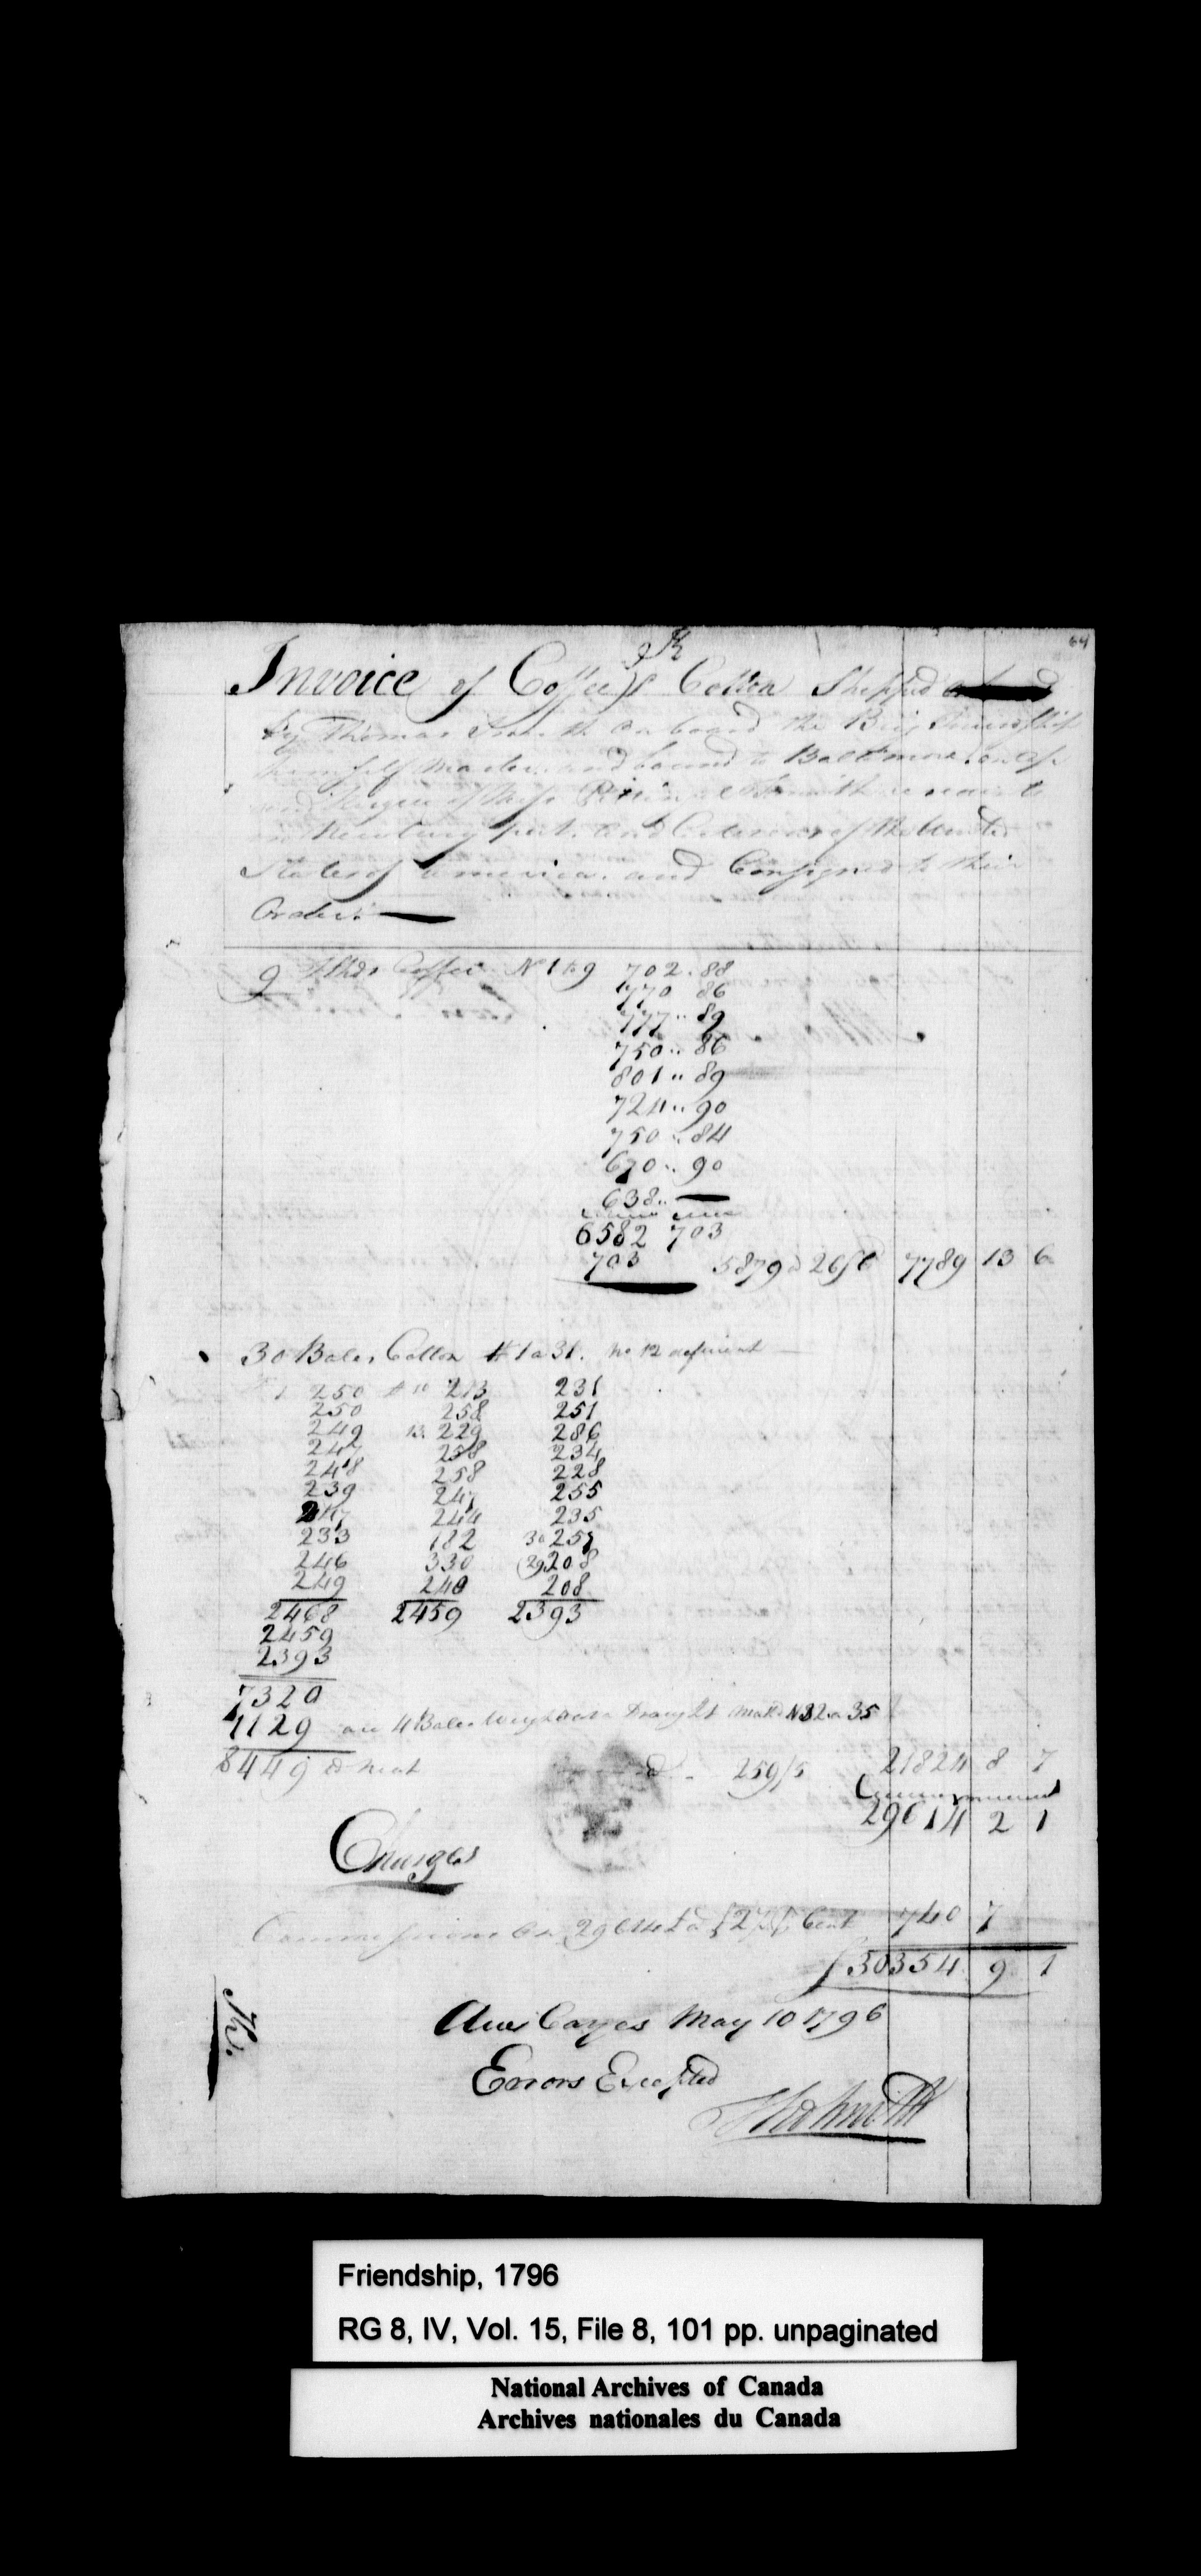 64
JK
Invoice of Coffee & Cotton Shipped
by Thomas Smith on board the Brig Friendship
himself Master and bound to Baltimore on
and of Mess
Newbury port. and Citizens of the United
States of America. and Consigned to their
Order.
9 Hhds Coffee No 1 to 9 702 .. 88
770 86
777 .. 89
750 .. 86
801 .. 89
724 .. 90
750 .. 84
670 .. 90
638 ..
6582 703
703 5879 a 26/6 7789 13 6
30 Bales Cotton # 1 a 31. No 12 deficient
# 1 250 # 11 213 231
250 258 251
249 13. 229 286
247 258 234
248 258 228
239 247 255
247 244 235
233 182 30 257
246 330 (29 208
249 240 208
2468 2459 2393
2459
2393
7320
1129 on 4 Bales Draught Markd N32 a 35
8449 Neat a 259/5 21824 8 7
29614 2 1
Charges
Commissions on 29614 a Cent 740 7
£ 30354 9 1
Aux Cayes May 10 1796
Errors Excepted
Tho Smith
Tho.
Friendship, 1796
RG 8, IV, Vol. 15, File 8, 101 pp. unpaginated
National Archives of Canada
Archives nationales du Canada